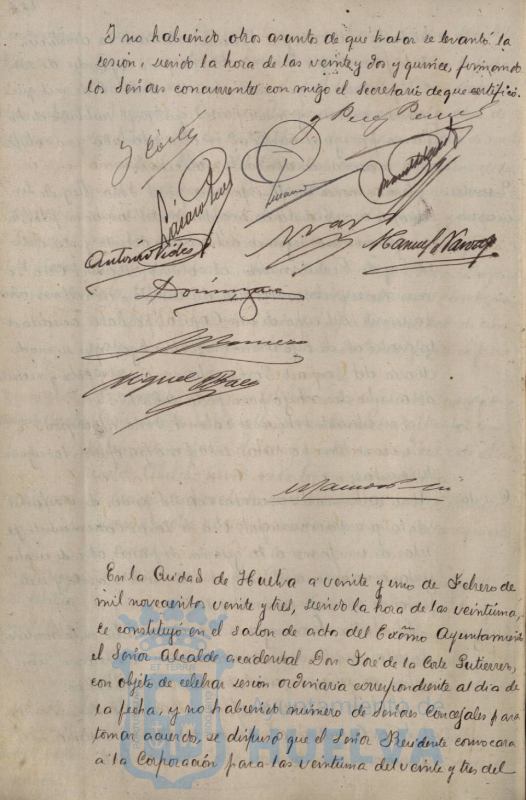 Y no habiendo otros asunto de que tratar se levantó la
sesion, siendo la hora de las veinte y dos y quince, firmando
los Señores concurrente con migo el Secretario de que certifico.
Antonio Vides
Manuel Narvaez
Dominguez
Romero
Miguel Baez
En la Ciudad de Huelva a veinte y uno de Febrero de
mil novecientos veinte y tres, siendo la hora de las veintiuna,
se constituyó en el salon de acto del Excmo Ayuntamiento
el Señor Alcalde accidental Don José de la Corte Gutierrez,
con objeto de celebrar sesion ordinaria correspondiente al dia de
la fecha, y no habiendo número de Señores Concejales para
tomar acuerdo, se dispuso que el Señor Presidente convocara
a la Corporación para las veintiuna del veinte y tres del
Ayuntamiento de
HUELVA